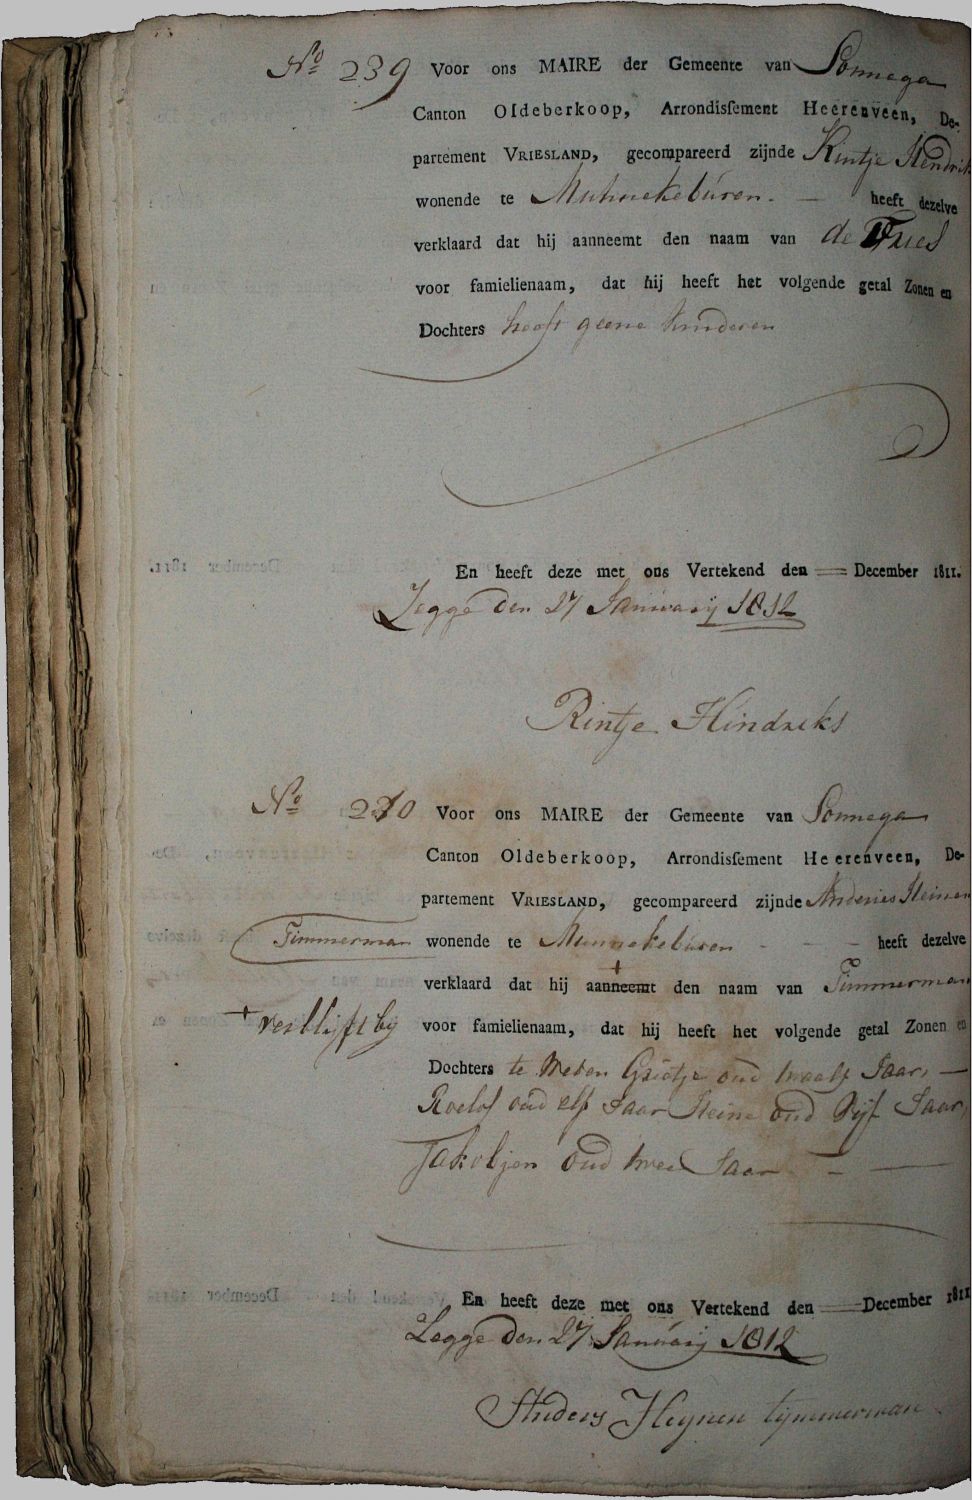 No 239 Voor ons MAIRE der Gemeente van Sonnega
Canton Oldeberkoop, Arrondissement Heerenveen, De-
partement VRIESLAND, gecompareerd zijnde Rintje Hendrik
wonende te Munnekebúren. — heeft dezelve
verklaard dat hij aanneemt den naam van de Vries
voor famielienaam, dat hij heeft het volgende getal Zonen en
Dochters heeft geene kinderen
En heeft deze met ons Vertekend den December 1811.
Zegge den 27 Januarij 1812
Rintje Hindreks
No 240 Voor ons MAIRE der Gemeente van Sonnega
Canton Oldeberkoop, Arrondissement Heerenveen, De-
partement VRIESLAND, gecompareerd zijnde Anderies Heinen
Timmerman wonende te Munnekebúren - - - heeft dezelve
verklaard dat hij + aanneemt den naam van Timmerman
+ verblijft by voor famielienaam, dat hij heeft het volgende getal Zonen en
Dochters te weten Grietje oud twaalf Jaar, —
Roelof oud elf Jaar Heine oud Vijf Jaar,
Jakobjen oud twee Jaar — - —
En heeft deze met ons Vertekend den December 1811
Zegge den 27 Janúarij 1812
Anders Heynen tymmerman